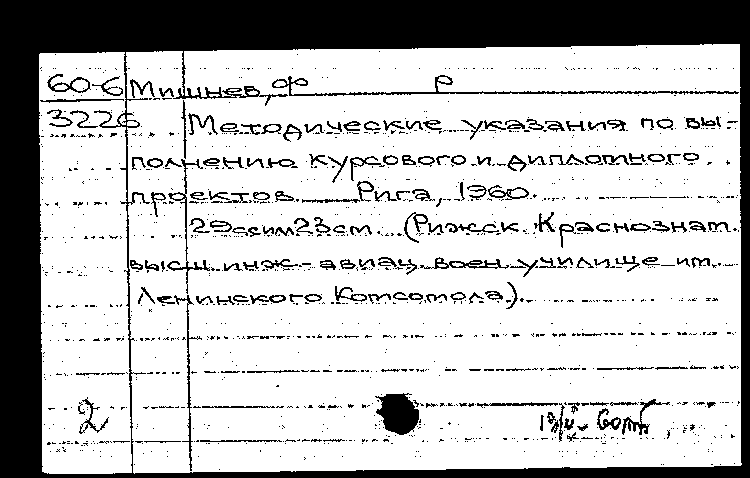 60-6 Мишнев, Ф Р
3226 Методические указания по вы-
полнению курсового и дипломного
проектов Рига, 1960.
29с сим 23см. (Рижск. Краснознам.
высш инж-авиац. воен училище им.
Ленинского Комсомола).
2